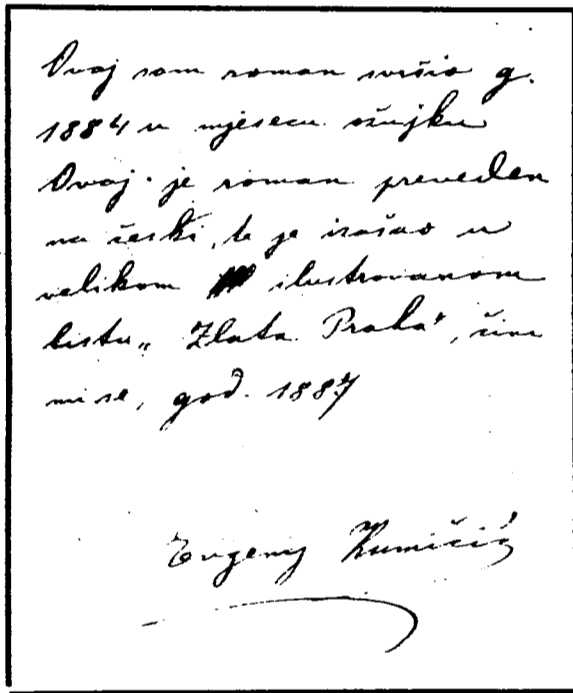 Ovaj sam roman svršio g.
1884 u mjesecu ožujku
Ovaj je roman preveden
na česki, te je izašao u
velikom ilustrovanom
listu „Zlata Praha", čini
mi se, god. 1887
Evgenij Kumičić